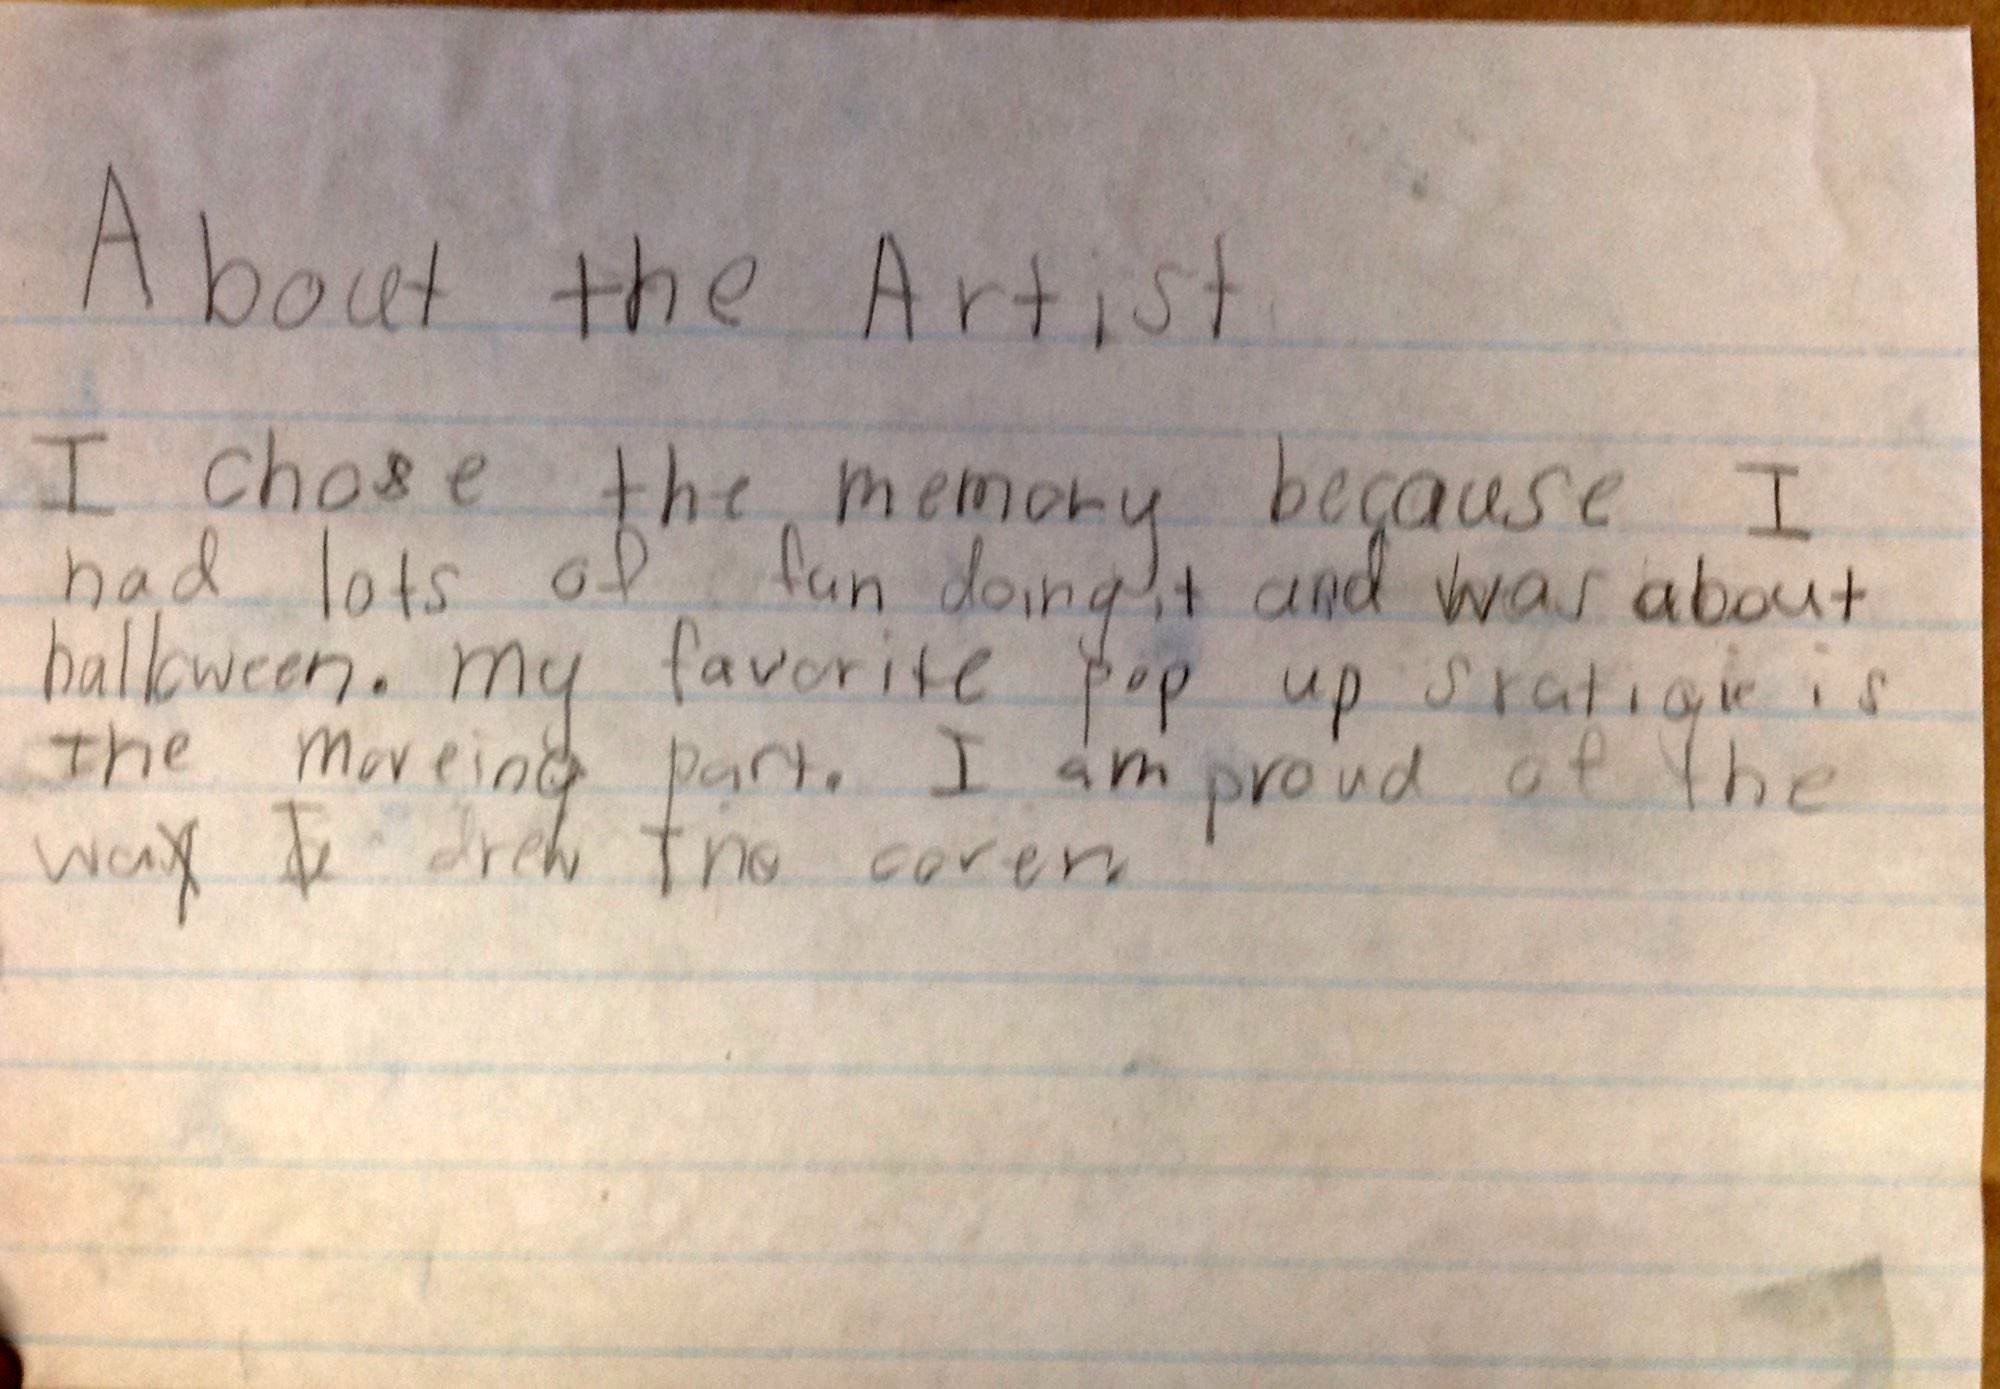 About the Artist
I chose the memory because I
had lots of fun doing it and was about
halloween. my favorite pop up sratigie is
the moveing part. I am proud of the
way I drew the cover.